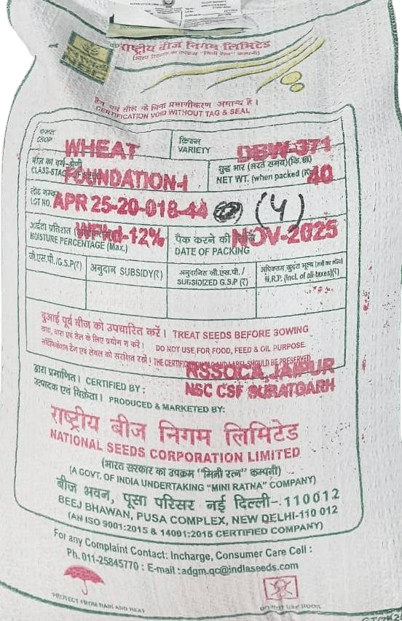 राष्ट्रीय बीज निगम लिमिटेड
टैग एवं सील के बिना प्रमाणीकरण अमान्य है।
CERTIFICATION VOID WITHOUT TAG & SEAL
फसल
CROP
WHEAT
किस्म
VARIETY
DBW-371
बीज का वर्ग-श्रेणी
CLASS-STAGE
FOUNDATION-I
शुद्ध भार (भरते समय)(कि.ग्रा)
NET WT. (when packed (KG)
40
लॉट नम्बर
LOT NO.
APR 25-20-018-44 (4)
आर्द्रता प्रतिशत
MOISTURE PERCENTAGE (Max.)
-12%
पैक करने की
DATE OF PACKING
NOV-2025
जी.एस.पी./G.S.P(₹)
अनुदान SUBSIDY(₹)
अनुदानित जी.एस.पी./
SUBSIDIZED G.S.P(₹)
अधिकतम खुदरा मूल्य
M.R.P. (Incl. of all taxes)(₹)
बुआई पूर्व बीज को उपचारित करें। TREAT SEEDS BEFORE SOWING
खाद्य, चारा एवं तेल के लिए प्रयोग न करें। DO NOT USE FOR FOOD, FEED & OIL PURPOSE.
SHOULD BE PRESERVED
द्वारा प्रमाणित। CERTIFIED BY :
RSSOCA, JAIPUR
उत्पादक एवं विक्रेता। PRODUCED & MARKETED BY:
NSC CSF SURATGARH
राष्ट्रीय बीज निगम लिमिटेड
NATIONAL SEEDS CORPORATION LIMITED
(भारत सरकार का उपक्रम "मिनी रत्न" कम्पनी)
(A GOVT. OF INDIA UNDERTAKING "MINI RATNA" COMPANY)
बीज भवन, पूसा परिसर नई दिल्ली-110012
BEEJ BHAWAN, PUSA COMPLEX, NEW DELHI-110 012
(AN ISO 9001:2015 & 14001:2015 CERTIFIED COMPANY)
For any Complaint Contact: Incharge, Consumer Care Cell :
Ph. 011-25845770 : E-mail :adgm.qc@indiaseeds.com
PROTECT FROM RAIN AND HEAT
DO NOT USE HOOK